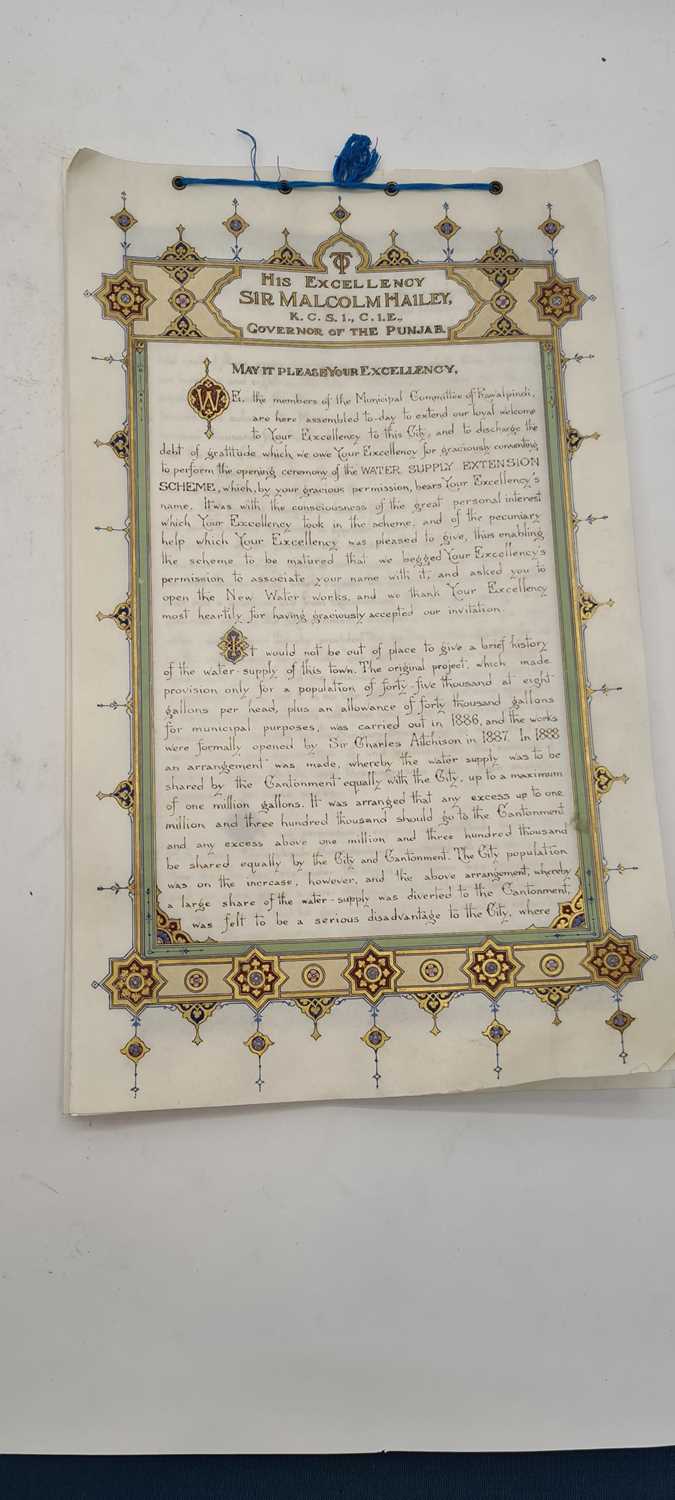 TO
HIS EXCELLENCY
SIR MALCOLM HAILEY,
K.C.S.I., C.I.E.,
GOVERNOR OF THE PUNJAB.
MAY IT PLEASE YOUR EXCELLENCY,
WE, the members of the Municipal Committee of Rawalpindi,
are here assembled to-day to extend our loyal welcome
to Your Excellency to this City, and to discharge the
debt of gratitude which we owe Your Excellency for graciously consenting
to perform the opening ceremony of the WATER SUPPLY EXTENSION
SCHEME, which, by your gracious permission, bears Your Excellency's
name. It was with the consciousness of the great personal interest
which Your Excellency took in the scheme, and of the pecuniary
help which Your Excellency was pleased to give, thus enabling
the scheme to be matured that we begged Your Excellency's
permission to associate your name with it, and asked you to
open the New Water-works, and we thank Your Excellency
most heartily for having graciously accepted our invitation.
It would not be out of place to give a brief history
of the water-supply of this town. The original project, which made
provision only for a population of forty-five thousand at eight
gallons per head, plus an allowance of forty thousand gallons
for municipal purposes, was carried out in 1886, and the works
were formally opened by Sir Charles Aitchison in 1887. In 1888
an arrangement was made, whereby the water supply was to be
shared by the Cantonment equally with the City, up to a maximum
of one million gallons. It was arranged that any excess up to one
million and three hundred thousand should go to the Cantonment
and any excess above one million and three hundred thousand
be shared equally by the City and Cantonment. The City population
was on the increase, however, and the above arrangement, whereby
a large share of the water-supply was diverted to the Cantonment,
was felt to be a serious disadvantage to the City, where